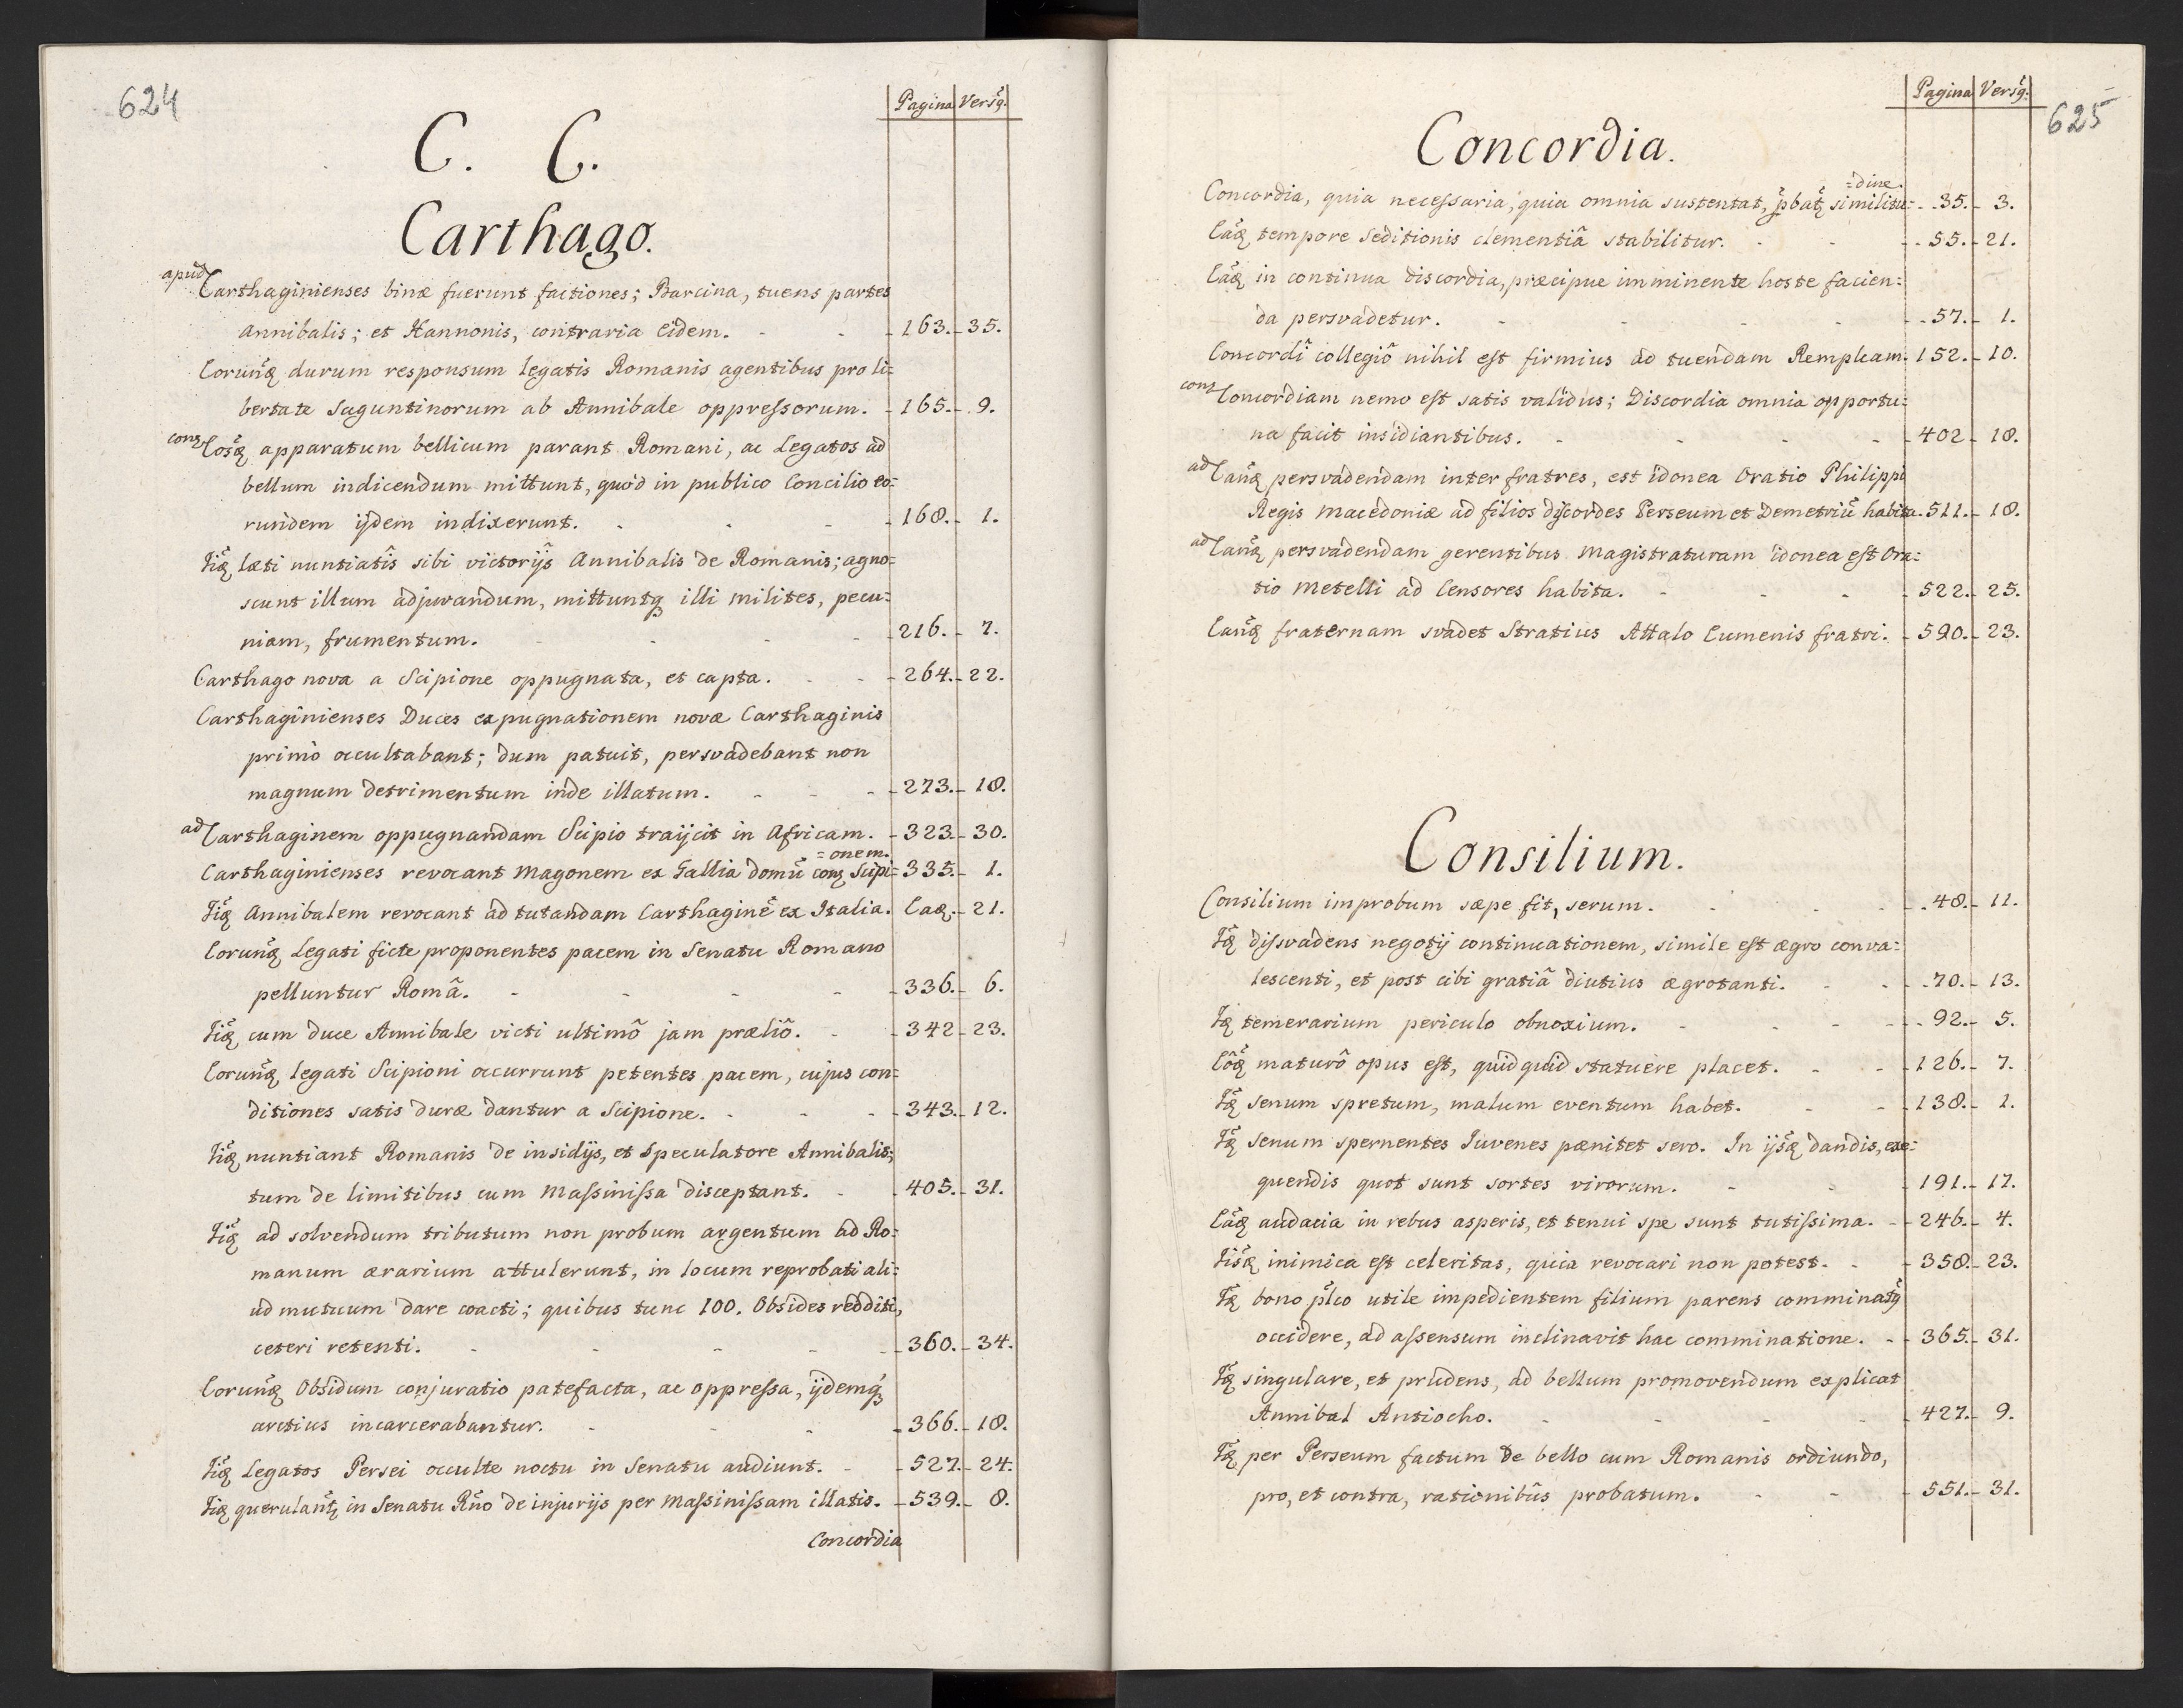 624
Pagina Versq.
C. C.
Carthago.
apud Carthaginienses binæ fuerunt factiones; Barcina, tuens partes
Annibalis; et Hannonis, contraria eidem. - - - 163. - 35.
Eorunq durum responsum legatis Romanis agentibus pro li=
bertate Saguntinorum ab Annibale oppressorum. - 165. - 9.
conz Eosq apparatum bellicum parant Romani, ac Legatos ad
bellum indicendum mittunt, quod in publico Concilio eo=
rundem ijdem indixerunt. - - - 168. - 1.
Iiq læti nuntiatis sibi victorijs Annibalis de Romanis; agno=
scunt illum adjuvandum, mittuntq illi milites, pecu=
niam, frumentum. - - - - 216. - 7.
Carthago nova a Scipione oppugnata, et capta. - - 264. - 22.
Carthaginienses Duces expugnationem novæ Carthaginis
primò occultabant; dum patuit, persvadebant non
magnum detrimentum inde illatum. - - - 273. - 18.
ad Carthaginem oppugnandam Scipio traijcit in Africam. - 323. - 30.
=onem.
Carthaginienses revocant Magonem ex Gallia domū conz Scipi= 335. - 1.
Iiq Annibalem revocant ad tutandam Carthaginē ex Italia. Eaq. - 21.
Eorunq Legati ficte proponentes pacem in Senatu Romano
pelluntur Româ. - - - - 336. - 6.
Iiq cum duce Annibale victi ultimô jam præliô. - - 342 - 23.
Eorunq legati Scipioni occurrunt petentes pacem, cujus con=
ditiones satis duræ dantur a Scipione. - - - 343. - 12.
Iiq nuntiant Romanis de insidijs, et speculatore Annibalis;
tum de limitibus cum Massinissa disceptant. - - 405. - 31.
Iiq ad solvendum tributum non probum argentum ad Ro=
manum ærarium attulerunt, in locum reprobati ali=
ud mutuum dare coacti; quibus tunc 100. Obsides redditi,
ceteri retenti. - - - - - 360. - 34.
Eorunq Obsidum conjuratio patefacta, ac oppressa, ijdemq
arctius incarcerabantur. - - - 366. - 18.
Iiq Legatos Persei occulte noctu in Senatu audiunt. - - 527. - 24.
Iiq querulantz in Senatu Rño de injurijs per Massinissam illatis. - 539. - 8.
Concordia
Pagina Versq.
625
Concordia.
=dine.
Concordia, quia necessaria, quia omnia sustentat, pbatz similitu= - 35. - 3.
Eaq tempore seditionis clementiâ stabilitur. - - - 55. - 21.
Eaq in continua discordia, præcipue imminente hoste facien=
da persvadetur. - - - - - 57. - 1.
Concordi collegiô nihil est firmius ad tuendam Rempleam. 152. - 10.
conz Concordiam nemo est satis validus; Discordia omnia opportu=
na facit insidiantibus. - - - - 402 - 18.
ad Eanq persvadendam inter fratres, est idonea Oratio Philippi
Regis Macedoniæ ad filios discordes Perseum et Demetriū habita. 511. - 18.
ad Eanq persvadendam gerentibus Magistraturam idonea est Ora=
tio Metelli ad Censores habita. - - - 522. - 25.
Eanq fraternam svadet Stratius Attalo Eumenis fratri. - 590. - 23.
Consilium.
Consilium improbum sæpe fit, serum. - - - 48. - 11.
Iq dissvadens negotij continuationem, simile est ægro conva=
lescenti, et post cibi gratiâ diutius ægrotanti. - - 70. - 13.
Iq temerarium periculo obnoxium. - - - 92. - 5.
Eôq maturô opus est, quidquid statuere placet. - - 126. - 7.
Iq senum spretum, malum eventum habet. - - 138. - 1.
Iq senum spernentes Iuvenes pænitet sero. In ijsq dandis, exe=
quendis quot sunt sortes virorum. - - 191. - 17.
Eaq audacia in rebus asperis, et tenui spe sunt tutissima. - - 246. - 4.
Iisq inimica est celeritas, quia revocari non potest. - - 358. - 23.
Iq bono plco utile impedientem filium parens comminatq
occidere, ad assensum inclinavit hac comminatione. - - 365. - 31.
Iq singulare, et prudens, ad bellum promovendum explicat
Annibal Antiocho. - - - - 427. - 9.
Iq per Perseum factum de bello cum Romanis ordiundo,
pro, et contra, rationibus probatum. - - 551. - 31.